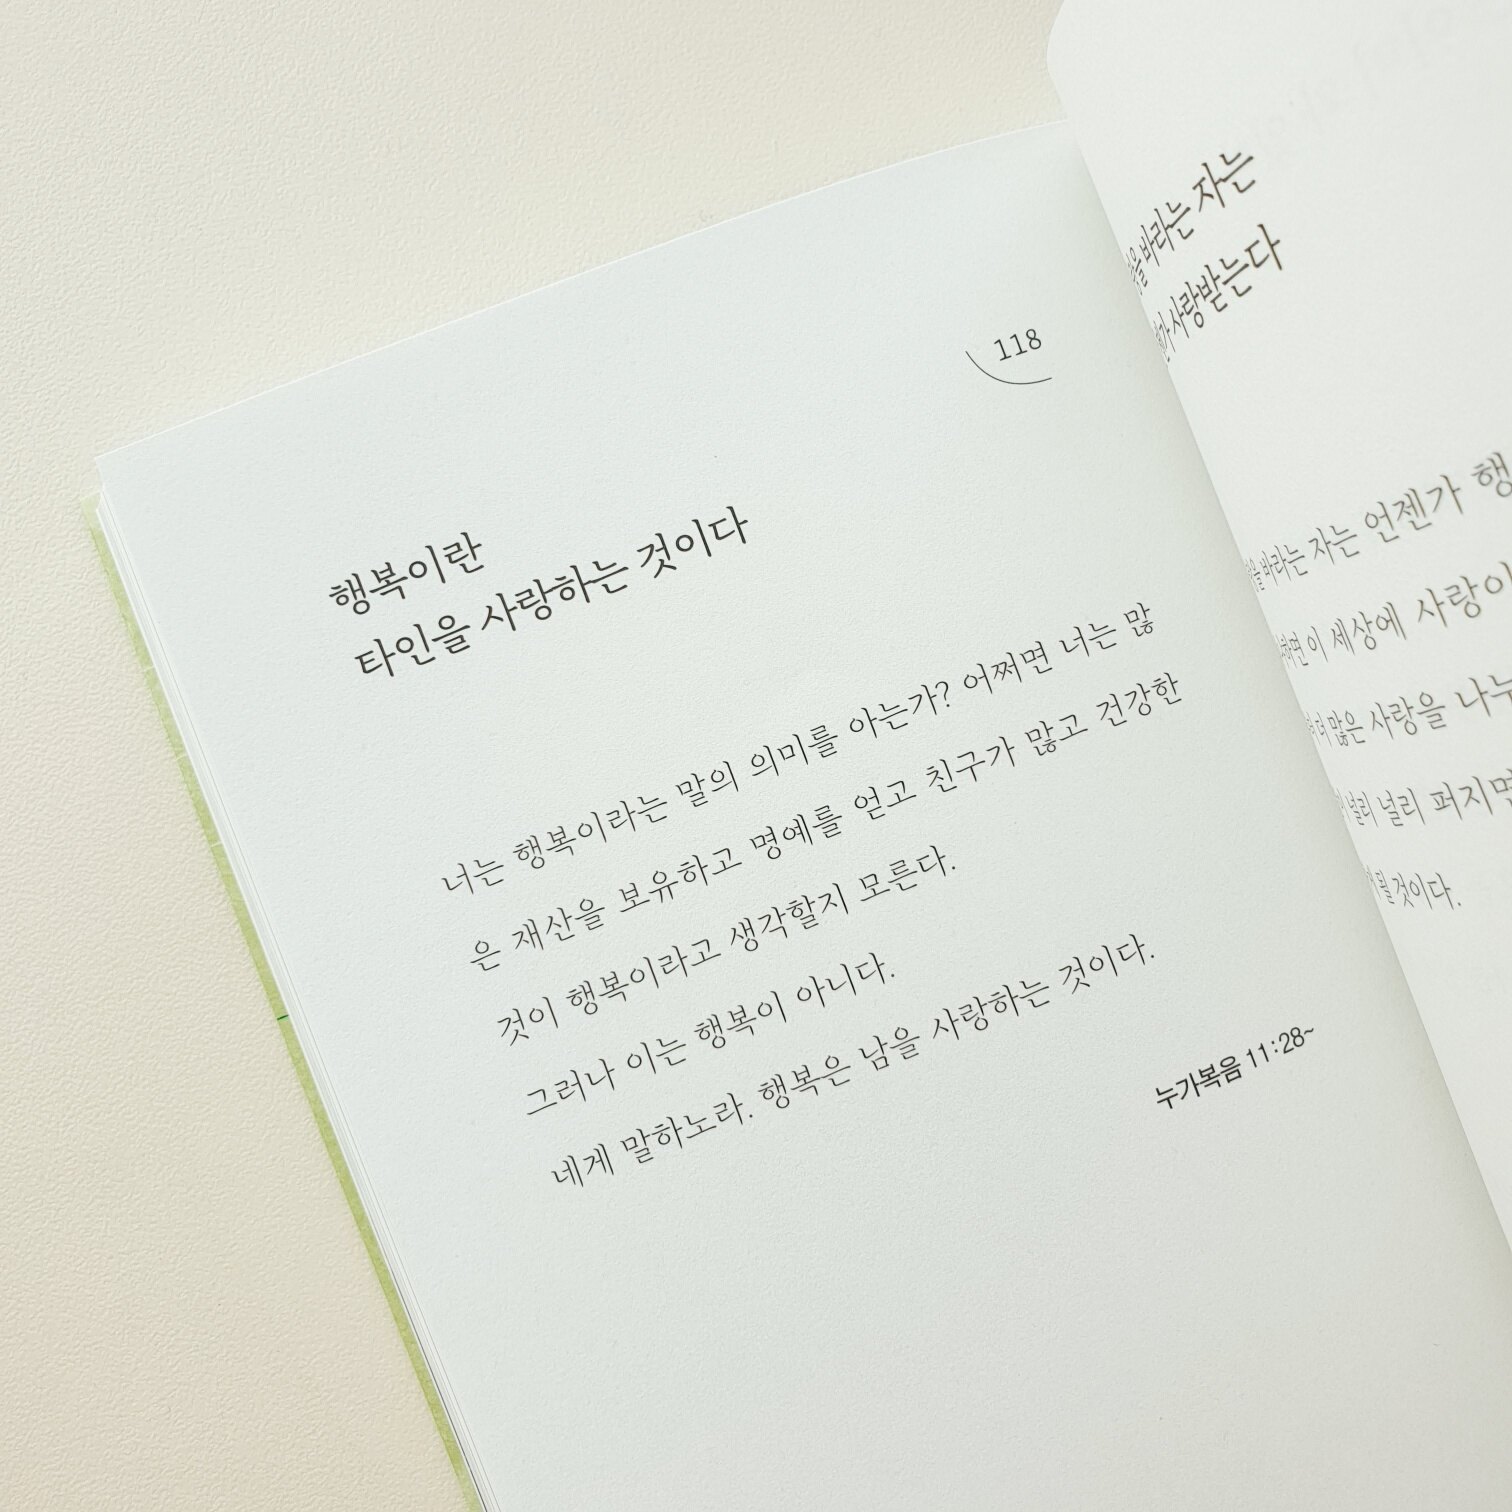 118
행복이란
타인을 사랑하는 것이다
너는 행복이라는 말의 의미를 아는가? 어쩌면 너는 많
은 재산을 보유하고 명예를 얻고 친구가 많고 건강한
것이 행복이라고 생각할지 모른다.
그러나 이는 행복이 아니다.
네게 말하노라. 행복은 남을 사랑하는 것이다.
누가복음 11:28~
바라는 자는
사랑받는다
바라는 자는 언젠가
이 세상에
더 많은 사랑을
널리 널리 퍼지면
될 것이다.